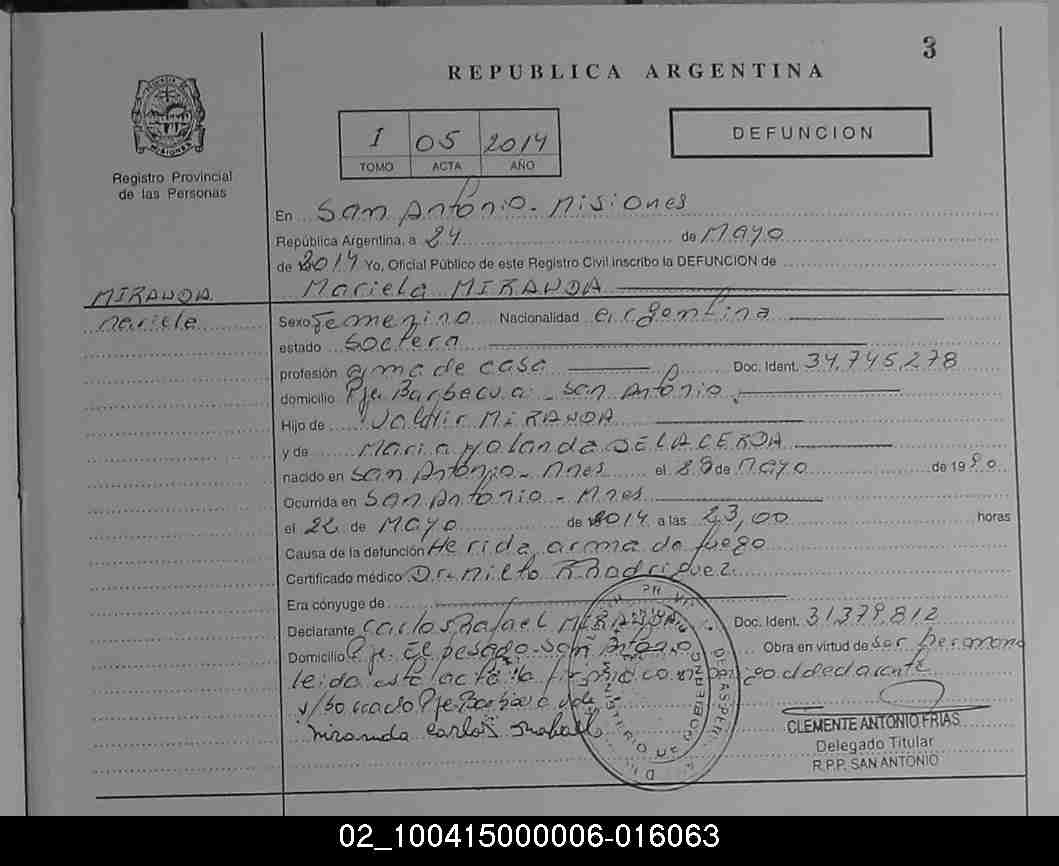 3
REPUBLICA ARGENTINA
I 05 2014
TOMO ACTA AÑO
DEFUNCION
Registro Provincial
de las Personas
En San Antonio - Misiones
República Argentina, a 24 de Mayo
de 2014 Yo, Oficial Público de este Registro Civil inscribo la DEFUNCION de
MIRANDA Mariela MIRANDA
Mariela
Sexo Femenino Nacionalidad argentina
estado Soltera
profesión ama de casa Doc. Ident. 34.745.278
domicilio Pje Barbacua - San Antonio
Hijo de MIRANDA
y de Maria Yolanda DE LA CERDA
nacido en San Antonio - Mnes el de Mayo de 1990
Ocurrida en San Antonio - Mnes
el 22 de Mayo de 2014 a las 23,00 horas
Causa de la defunción Herida arma de fuego
Certificado médico Dr. Milto Rhodriguez
Era cónyuge de
Declarante Carlos Rafael MIRANDA Doc. Ident. 31.379.812
Domicilio Pje. El pesado - San Antonio Obra en virtud de ser hermano
leida esta acta la firma conmigo el declarante
s/borrado Pje Barbacua vale
Miranda Carlos Rafael
MINISTERIO DE GOBIERNO
CLEMENTE ANTONIO FRIAS
Delegado Titular
R.P.P. SAN ANTONIO
02_100415000006-016063